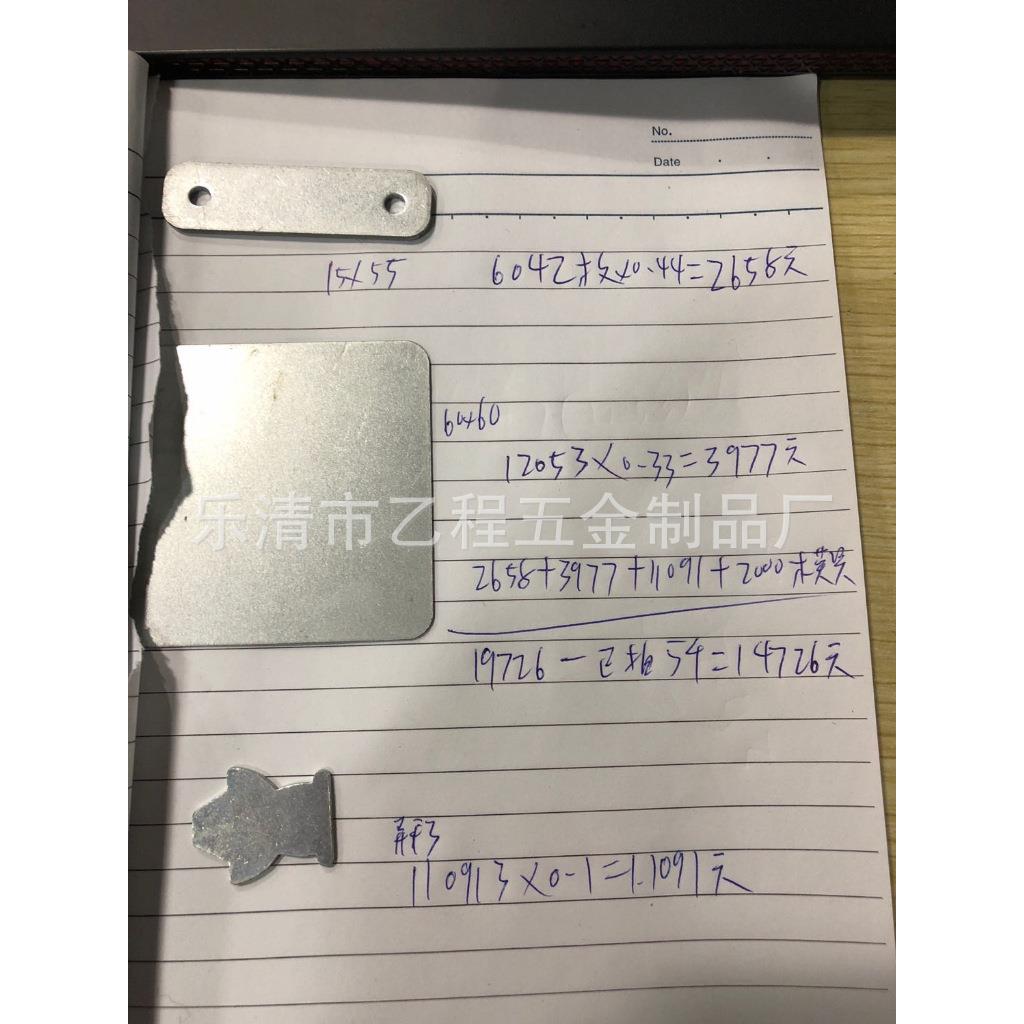 No.
Date
15×55
6042枚×0.44=2658元
60×60
12053×0.33=3977元
乐清市乙程五金制品厂
2658+3977+11091+2000模具
19726-已拍54=14726元
异形
110913×0-1=1.1091元